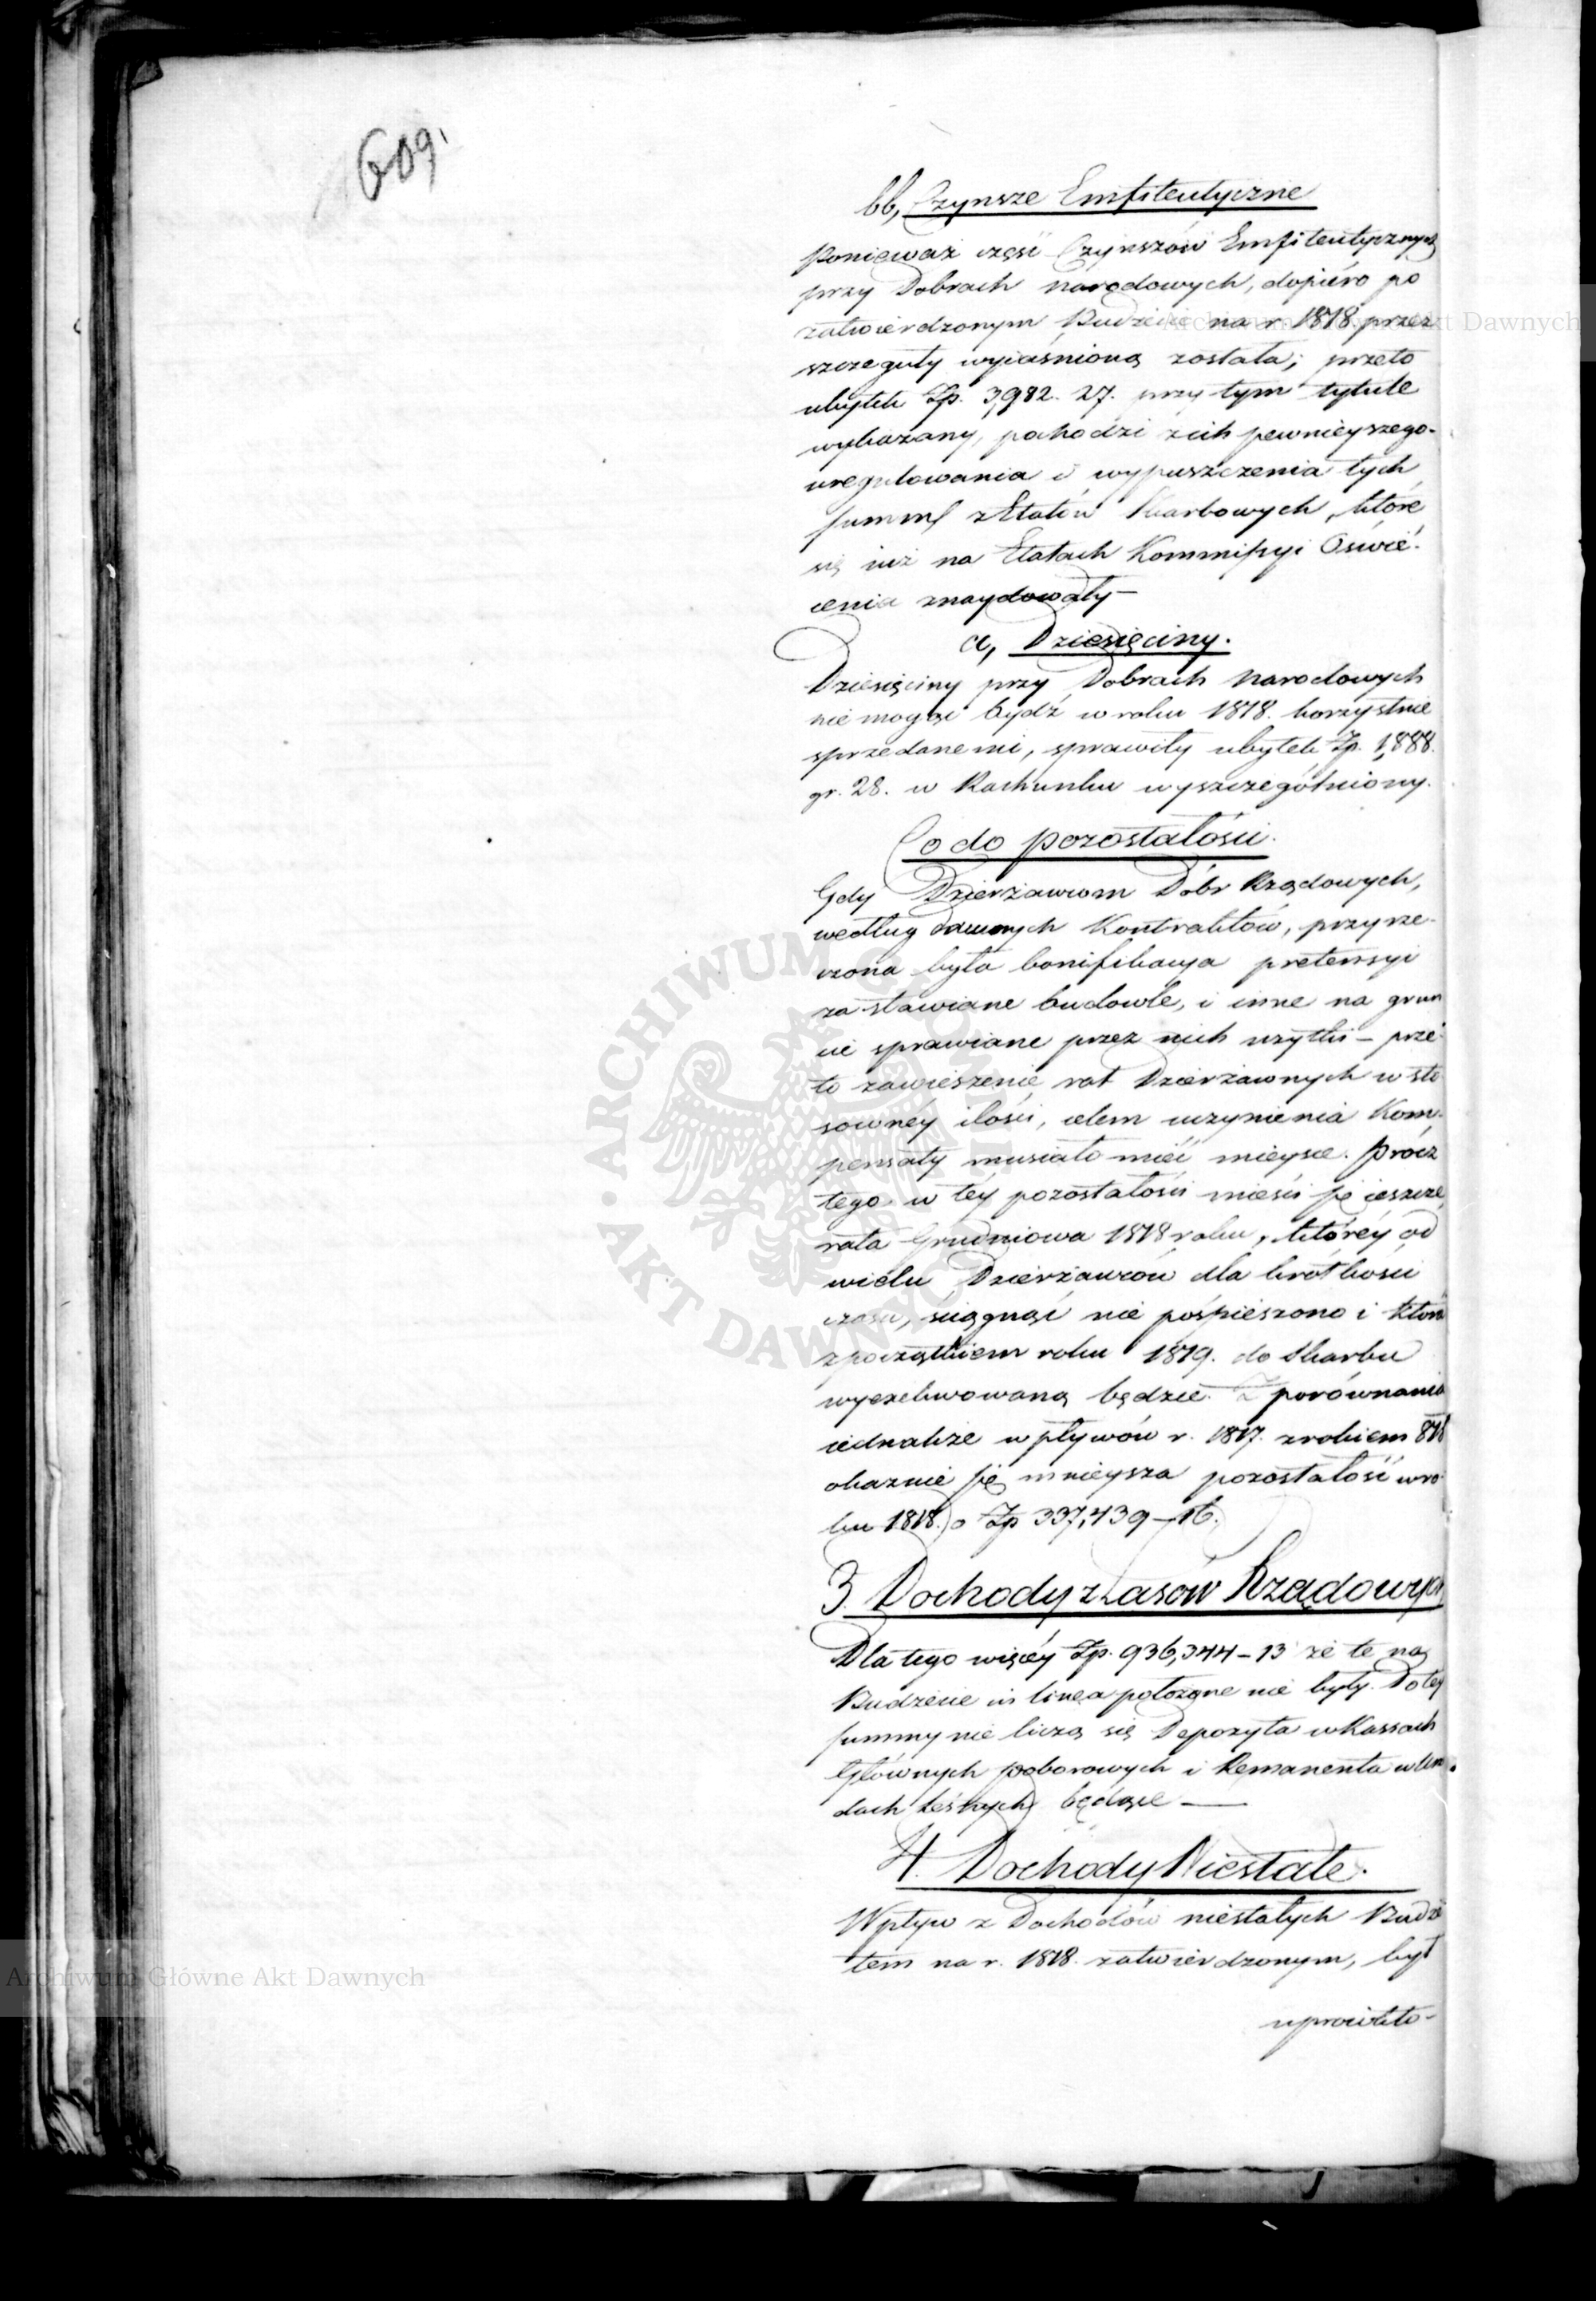 609.
bb, Czynsze Emfiteutyczne
Ponieważ część Czynszów Emfiteutycznych
przy Dobrach narodowych, dopiéro po
zatwierdzonym Budżecie na r. 1818 przez
szczeguły wyjaśnioną została; przeto
ubytek Zp. 3,982. 27. przy tym tytule
wykazany, pochodzi z ich pewnieyszego
uregulowania i wypuszczenia tych
summ z Etatów Skarbowych, które
się iuż na Etatach Kommissyi Oświé-
cenia znaydowały —
Dziesięciny.
Dziesięciny przy Dobrach Narodowych
nie mogąc bydź w roku 1818. korzystnie
sprzedanemi, sprawiły ubytek Zp. 1,888.
gr. 28. w Rachunku wyszczególniony.
Co do pozostałości.
Gdy Dzierżawcom Dóbr Rządowych,
według dawnych Kontraktów, przyrze-
czona była bonifikacya pretensyi
za stawiane budowle, i inne na grun
cie sprawiane przez nich użytki — prze-
to zawieszenie rat Dzierżawnych w sto
sownéy ilości, celem uczynienia Kom-
pensaty musiało mieć mieysce. Prócz
tego w téy pozostałości mieści się ieszcze
rata Grudniowa 1818 roku, któréy od
wielu Dzierżawców dla krótkości
czasu, ściągnąć nie pośpieszono i która
z początkiem roku 1819. do Skarbu
wyexekwowaną będzie. Z porównania
iednakże wpływów r. 1817. z rokiem 818
okaznie się mnieysza pozostałość w ro-
ku 1818. o Zp 337,439 — 16.
3. Dochody z Lasów Rządowych
Dla tego więcéy Zp. 936,344 — 13 że te na
Budżecie in linea położone nie były. Do téy
summy nie liczą się Depozyta w Kassach
Głównych poborowych i Remanenta w Urzę
dach Leśnych będące —
4. Dochody Niestałe.
Wpływ z Dochodów niestałych Budże
tem na r. 1818. zatwierdzonym, był
uprojekto-
ARCHIWUM GŁÓWNE AKT DAWNYCH
Archiwum Główne Akt Dawnych
Archiwum Główne Akt Dawnych